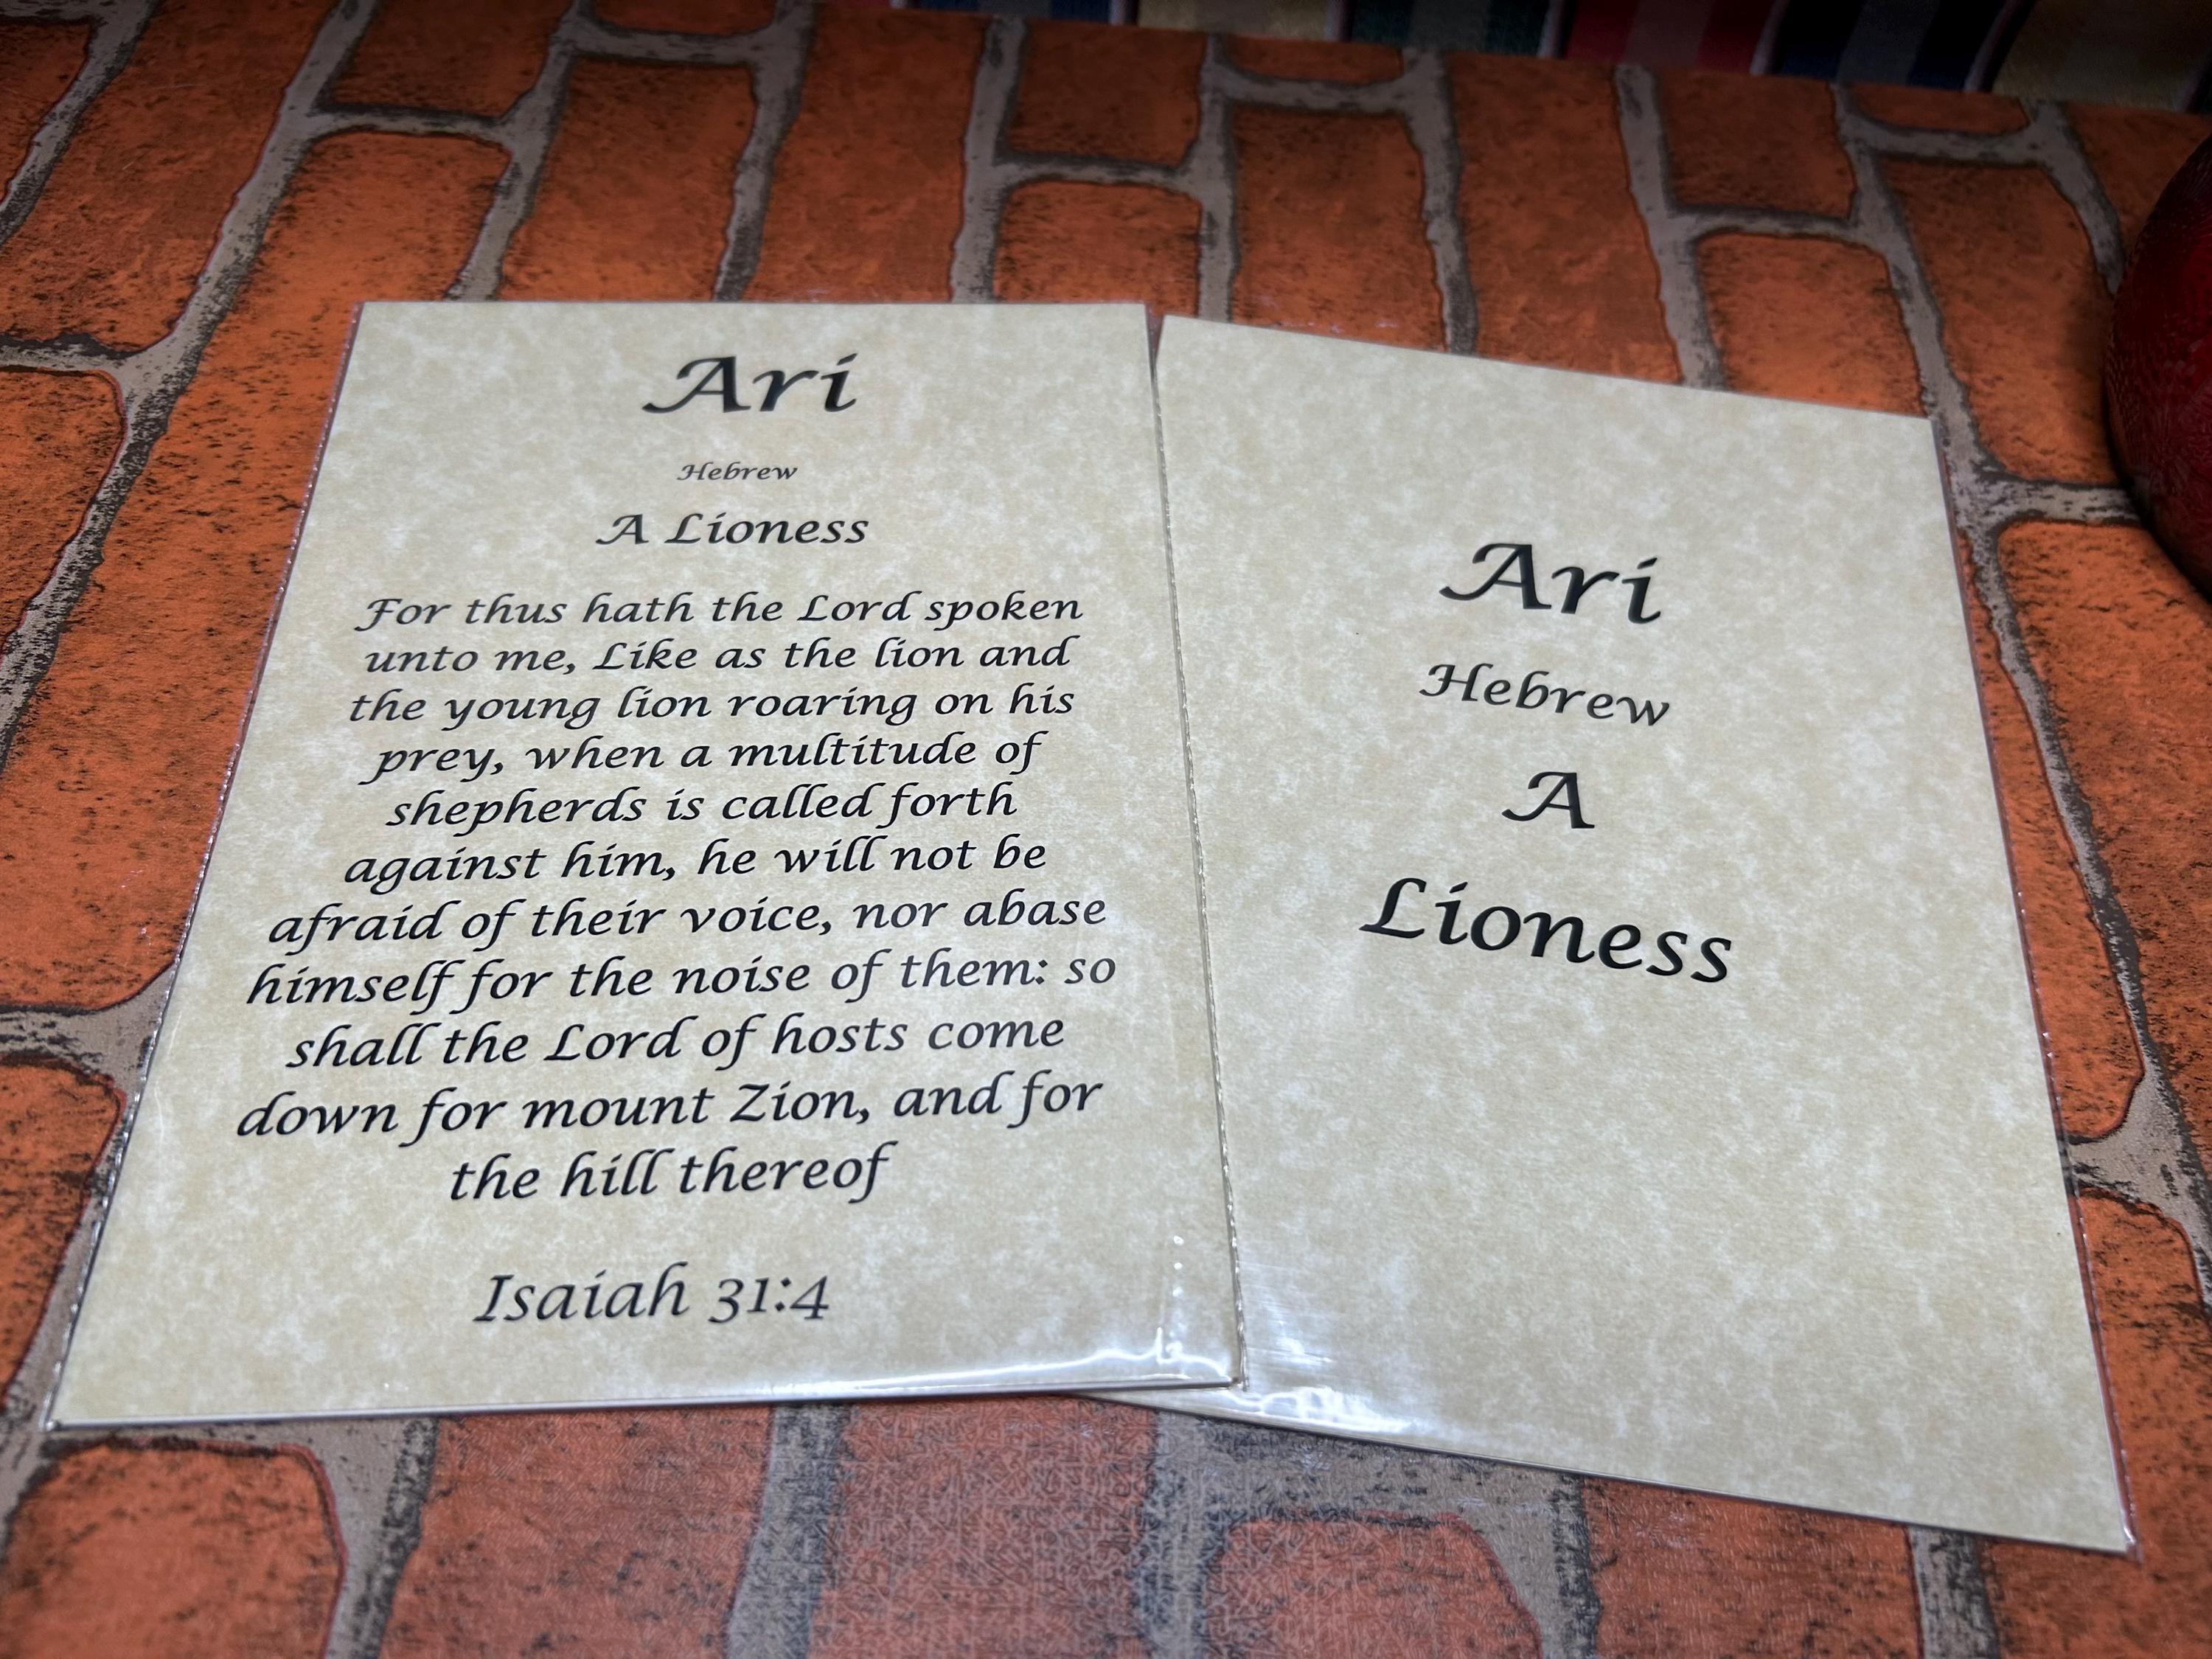 Ari
Hebrew
A Lioness
For thus hath the Lord spoken
unto me, Like as the lion and
the young lion roaring on his
prey, when a multitude of
shepherds is called forth
against him, he will not be
afraid of their voice, nor abase
himself for the noise of them: so
shall the Lord of hosts come
down for mount Zion, and for
the hill thereof
Isaiah 31:4
Ari
Hebrew
A
Lioness